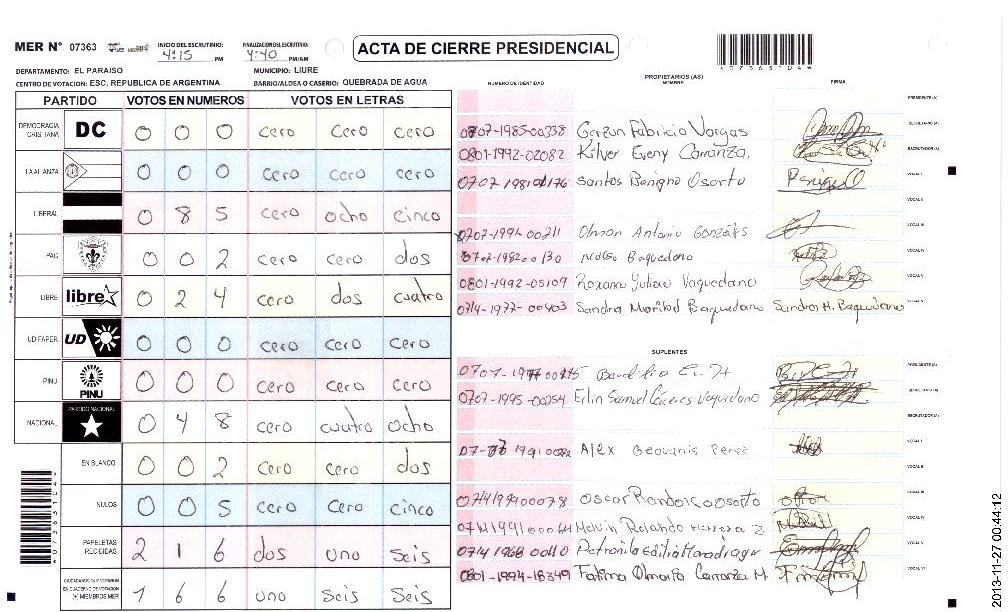 MER N° 07363 INICIO DEL ESCRUTINIO: 4:15 PM FINALIZACION DEL ESCRUTINIO: 4:40 PM/AM
ACTA DE CIERRE PRESIDENCIAL
DEPARTAMENTO: EL PARAISO MUNICIPIO: LIURE
CENTRO DE VOTACION: ESC. REPUBLICA DE ARGENTINA BARRIO/ALDEA O CASERIO: QUEBRADA DE AGUA
PARTIDO VOTOS EN NUMEROS VOTOS EN LETRAS
DEMOCRACIA CRISTIANA DC 0 0 0 cero cero cero
LA ALIANZA 0 0 0 cero cero cero
LIBERAL 0 8 5 cero ocho cinco
PAC 0 0 2 cero cero dos
LIBRE libre 0 2 4 cero dos cuatro
UD/FAPER UD 0 0 0 cero cero cero
PINU PINU 0 0 0 cero cero cero
NACIONAL PARTIDO NACIONAL 0 4 8 cero cuatro ocho
EN BLANCO 0 0 2 cero cero dos
NULOS 0 0 5 cero cero cinco
PAPELETAS RECIBIDAS 2 1 6 dos uno seis
CIUDADANOS QUE VOTARON EN CUADERNO DE VOTACION (+) MIEMBROS MER 1 6 6 uno seis seis
PROPIETARIOS (AS)
NUMERO DE IDENTIDAD NOMBRE FIRMA
PRESIDENTE(A)
0707-1985-00338 Gerzun Fabricio Vargas SECRETARIO(A)
0801-1992-02082 Kilver Eveny Carranza. ESCRUTADOR(A)
Santos Benigno Osorto VOCAL I
VOCAL II
Antonio Gonzáles VOCAL III
Baquedano VOCAL IV
0801-1992-05109 Roxana Yulisa Vaquedano VOCAL V
0714-1977-00403 Sandra Maribel Baquedano Sandra M. Baquedano VOCAL VI
SUPLENTES
PRESIDENTE(A)
0707-1995-00054 Erlin Samuel Cáceres Vaquedano SECRETARIO(A)
ESCRUTADOR(A)
Alex Geovanis Perez VOCAL I
VOCAL II
0714199900078 Oscar Osorto VOCAL III
Melvin Rolando Herrera Z VOCAL IV
Petronila VOCAL V
0801-1994-18349 Fatima Carranza M. VOCAL VI
2013-11-27 00:44:12